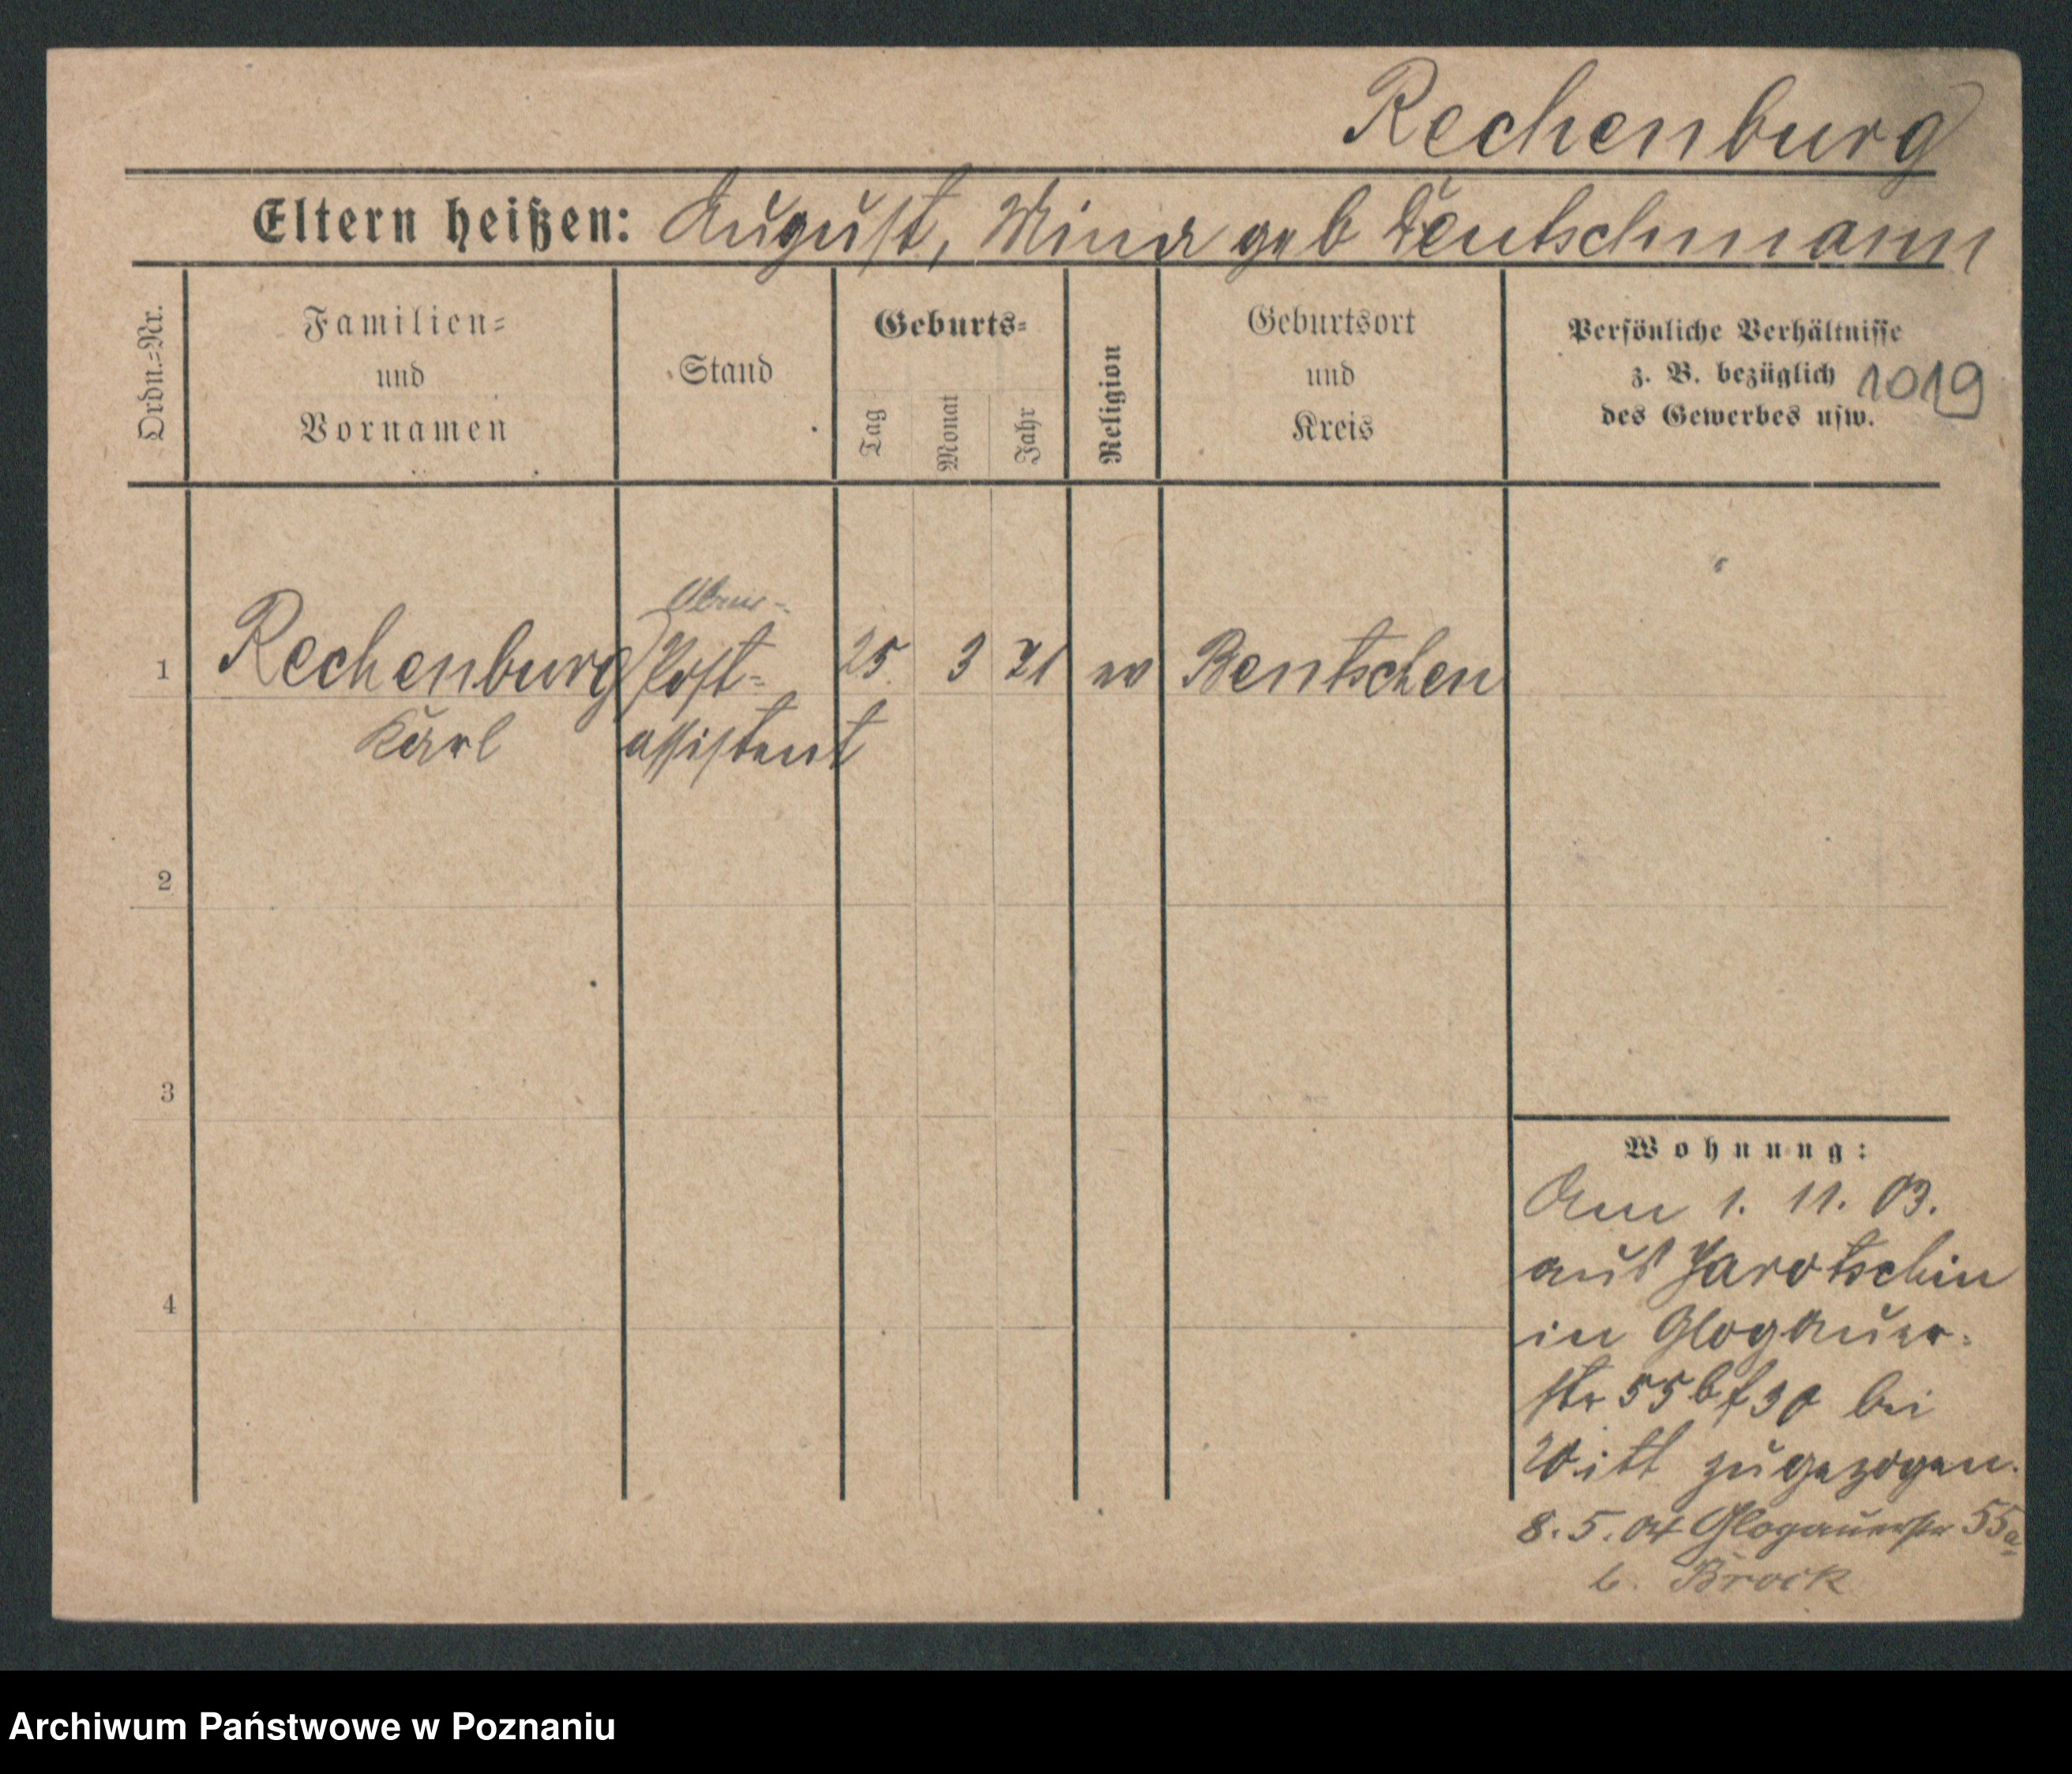 Rechenburg
Eltern heißen: August, Mina geb Deutschmann
Ordn.=Nr.
Familien=
und
Vornamen
Stand
Geburts=
Tag
Monat
Jahr
Religion
Geburtsort
und
Kreis
Persönliche Verhältnisse
z. B. bezüglich
des Gewerbes usw.
1019
Ober-
1 Rechenburg Post= 25. 3 71 ev Bentschen
Karl assistent
2
3
4
Wohnung:
Am 1. 11. 03.
aus Jarotschin
in Glogauer-
str 55 b bei
Witt zugezogen.
8. 5. 04 Glogauerstr 55a
b. Brock
Archiwum Państwowe w Poznaniu